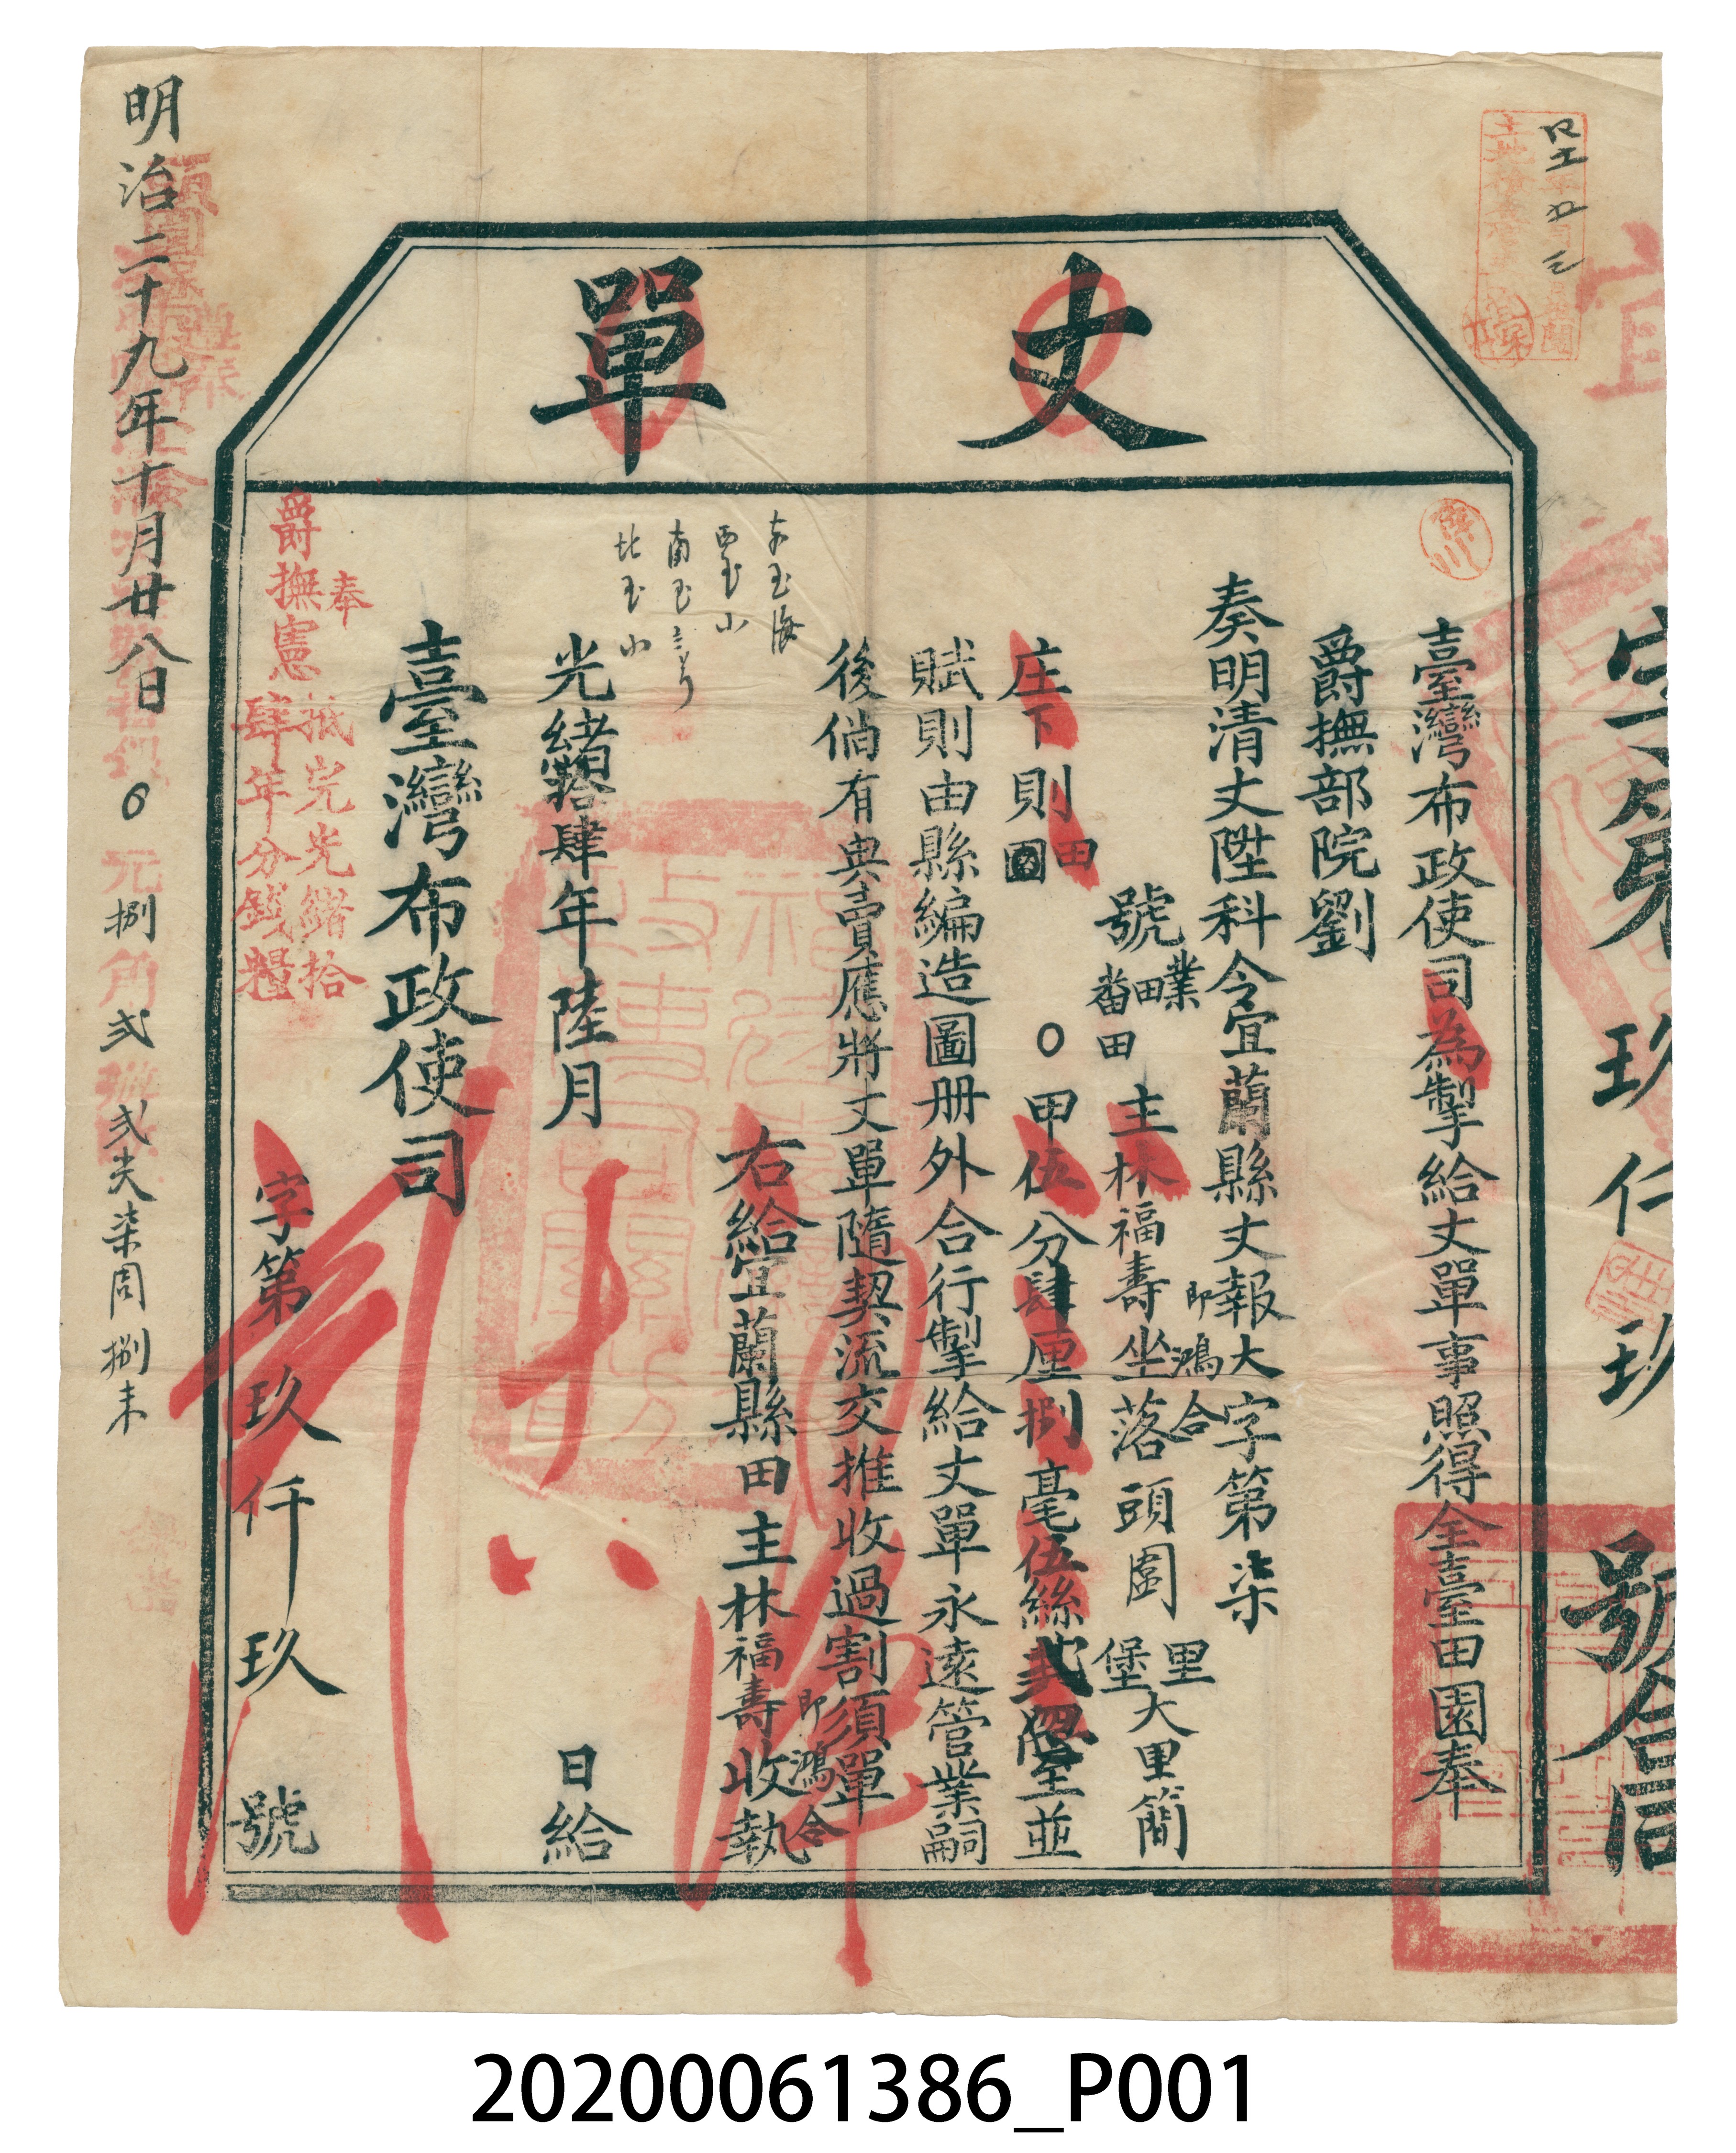 丈單
臺灣布政使司為掣給丈單事照得全臺田園奉
爵撫部院劉
奏明清丈陞科令宜蘭縣丈報大字第柒
號業田番田主林福壽即鴻合坐落頭圍里堡大里簡
庄下則田園〇甲伍分肆厘捌毫伍絲貳忽並
賦則由縣編造圖册外合行掣給丈單永遠管業嗣
後倘有典賣應將丈單隨契流交推收過割須單
右給宜蘭縣田主林福壽即鴻合收執
東至海
西至山
南至
北至山
光緒拾肆年陸月 日給
臺灣布政使司
奉
爵撫憲
抵完光緒拾
肆年分錢糧
字第玖仟玖號
字第玖仟玖號合同
宜
明治二十九年十月廿八日
元捌角貳
20200061386_P001